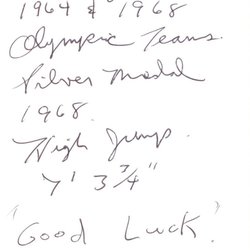 1964 & 1968
Olympic Teams.
Silver Medal
1968.
High Jump.
7' 3 3/4"
"Good Luck."